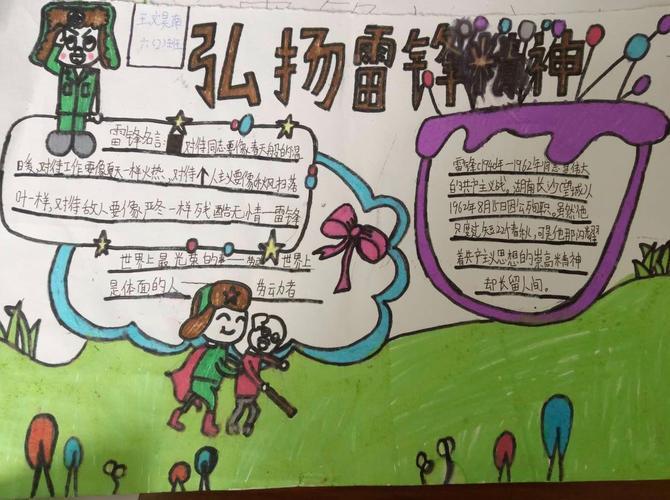 弘扬雷锋精神
六(2)班
雷锋名言:对待同志要像春天般的温
暖,对待工作要像夏天一样火热,对待个人主义要像秋风扫落
叶一样,对待敌人要像严冬一样残酷无情—雷锋
世界上最光荣的事——劳动 世界上
是体面的人——劳动者
雷锋(1940年—1962年)
的共产主义战,湖南长沙(望城)人
1962年8月15日因公殉职。虽然他
只度过短短22个春秋,可是他那闪耀
着共产主义思想的崇高精神
却长留人间。